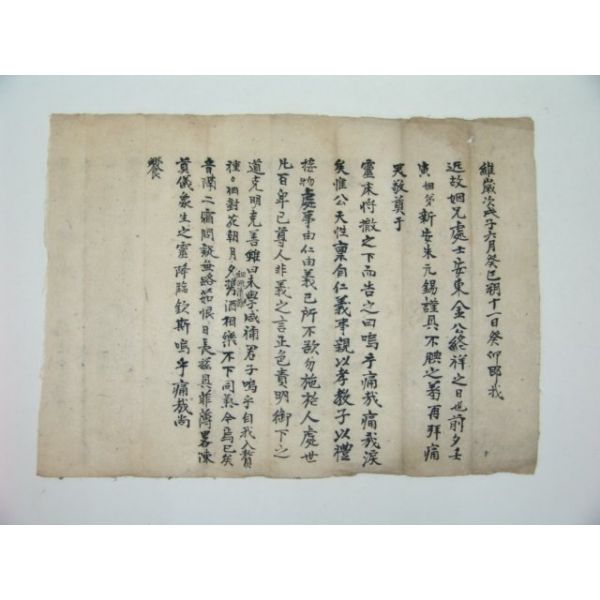 維歲次戊子六月癸巳朔十一日癸卯即我
近故姻兄處士安東金公終祥之日也前夕壬
寅姻弟新安朱元錫謹具不腆之羞再拜痛
哭敬奠于
靈床將撤之下而告之曰嗚乎痛哉痛哉淚
矣惟公天性稟有仁義事親以孝教子以禮
接物處事由仁由義已所不欲勿施於人處世
凡百卑已尊人非義之言正色責明御下之
道克明克善雖曰未學咸稱君子嗚乎自我入贅
種々相對花朝月夕携酒相樂不下同氣今焉已矣
音隔二痛問疑無路茹恨日長玆具菲薄畧陳
賁儀衆生之靈降臨欽斯嗚乎痛哉尚
饗